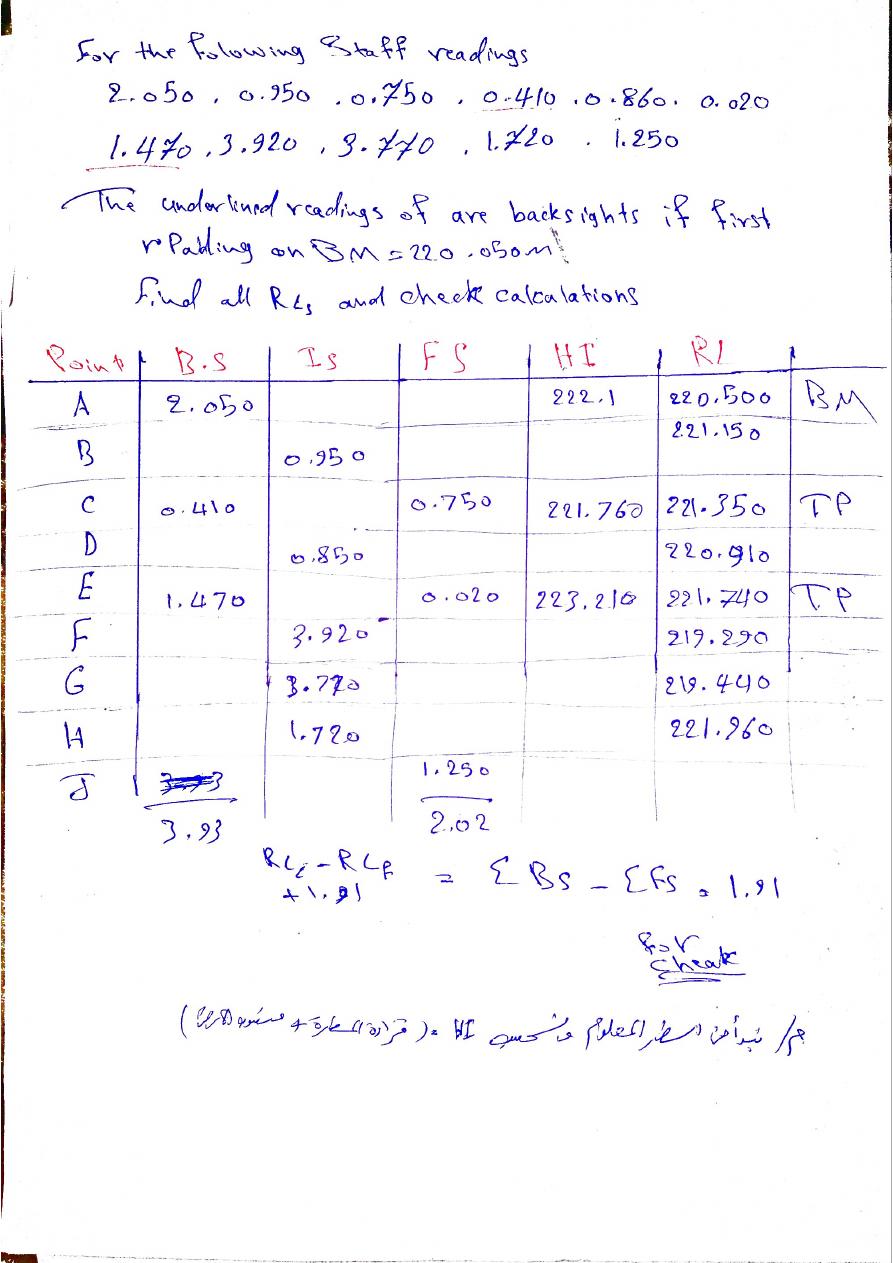 For the folowing Staff readings
2.050 , 0.950 , 0.750 , 0.410 , 0.860 , 0.020
1.470 , 3.920 , 3.770 , 1.720 . 1.250
The underlined readings of are backsights if first
on BM = 220.050m
find all RLs and check calculations
Point B.S Is FS HI RL
A 2.050 222.1 220.500 BM
B 0.950 221.150
C 0.410 0.750 221.760 221.350 TP
D 0.850 220.910
E 1.470 0.020 223.210 221.740 TP
F 3.920 219.290
G 3.770 219.440
H 1.720 221.960
J 1.250
3.93 2.02
RLi - RLf = Σ BS - ΣFS = 1.91
+1.91
for
cheak
نبدأ من السطر المعلوم ونحسب HI = (قراءة المسطرة +